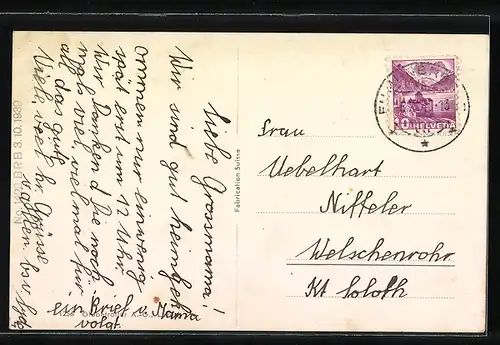 Liebe Grossmama!
Wir sind gut heimgek
ommen nur einwenig
spät erst um 12 Uhr.
Wir Danken d Die noch
mals viel, vielmal für
all das gute.
Viele, viele hr Grüsse
ein Brief u. Mama
volgt.
No. 11420 BRB 3.10.1939
Fabrication Suisse
HELVETIA
10
Frau
Uebelhart
Niffeler
Welschenrohr
Kt Soloth